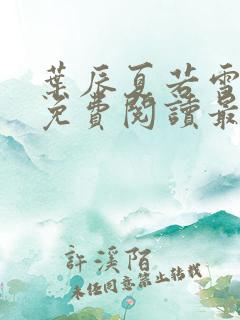 葉辰夏若雪
免費閱讀最
許溪陌
未经同意禁止转载